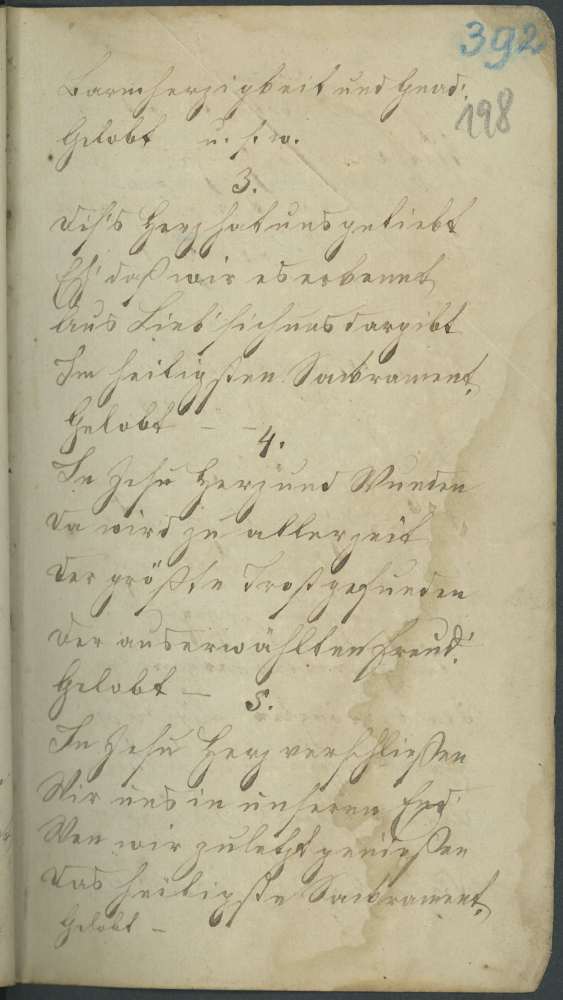 392
198
Barmherzigkeit und Gnad'.
Gelobt u. s. w.
3.
Dies's Herz hat uns geliebt
Eh' daß wir es erkennt
Aus Lieb' sich uns dargibt
Im heiligsten Sackrament.
Gelobt – –
4.
In Jesu Herz und Wunden
Da wird zu aller zeit
Der größte Trost gefunden
Der auserwählten Freud'.
Gelobt –
5.
In Jesu Herz verschließen
Wir uns in unseren End'
Wen wir zuletzt genießen
Das heiligste Sackrament.
Gelobt –